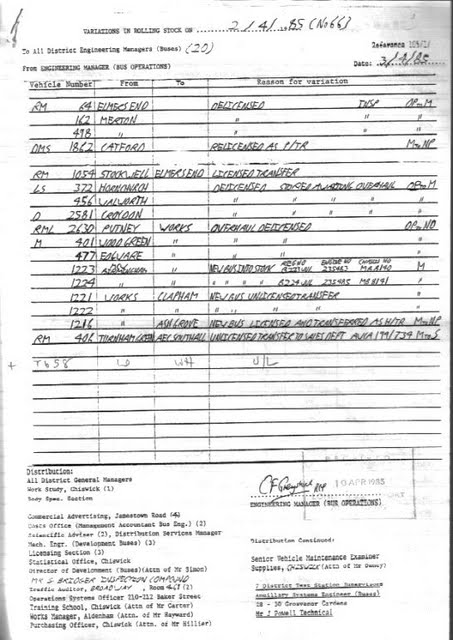 VARIATIONS IN ROLLING STOCK ON 2/4/85 (No 66)
To All District Engineering Managers (Buses) (20)
Reference 103/1/
From ENGINEERING MANAGER (BUS OPERATIONS)
Date: 3/4/85
Vehicle Number From To Reason for variation
RM 64 ELMERS END DELICENSED INSP OP=M
162 MERTON " " "
498 " " " "
DMS 1862 CATFORD RELICENSED AS P/TR M=NP
RM 1054 STOCKWELL ELMERS END LICENSED TRANSFER
LS 372 HORNCHURCH DELICENSED STORED AWAITING OVERHAUL OP=M
456 WALWORTH " " " " "
D 2581 CROYDON " " " " "
RML 2630 PUTNEY WORKS OVERHAUL DELICENSED OP=NO
M 401 WOOD GREEN " " "
477 EDGWARE " " "
1223 NEW BUS INTO STOCK REG NO ENGINE NO CHASSIS NO M
1224 " " " " " "
1221 WORKS CLAPHAM NEW BUS UNLICENSED TRANSFER "
1222 " " " "
1216 " ASH GROVE NEW BUS LICENSED AND TRANSFERRED AS H/TR M=NP
RM 406 TURNHAM GREEN AEC SOUTHALL UNLICENSED TRANSFER TO SALES DEPT AWA 199/734 M=S
+ T658 LD WH U/L
Distribution:
All District General Managers
Work Study, Chiswick (1)
Body Spec. Section
10 APR 1985
ENGINEERING MANAGER (BUS OPERATIONS)
Commercial Advertising, Jamestown Road
Costs Office (Management Accountant Bus Eng.) (2)
Scientific Adviser (2), Distribution Services Manager
Mech. Engr. (Development Buses) (3)
Licensing Section (3)
Statistical Office, Chiswick
Director of Development (Buses)(Attn of Mr Simon)
MR S BRIDGER INSPECTION COMPOUND
Traffic Auditor, BROADWAY, Room
Operations Systems Officer 210-212 Baker Street
Training School, Chiswick (Attn of Mr Carter)
Works Manager, Aldenham (Attn of Mr Hayward)
Purchasing Officer, Chiswick (Attn. of Mr Hillier)
Distribution Continued:
Senior Vehicle Maintenance Examiner
Supplies, CHISWICK (Attn of Mr Denny)
7 District Test Station Supervisors
Ancillary Systems Engineer (Buses)
28 - 30 Grosvenor Gardens
Mr J Powell Technical